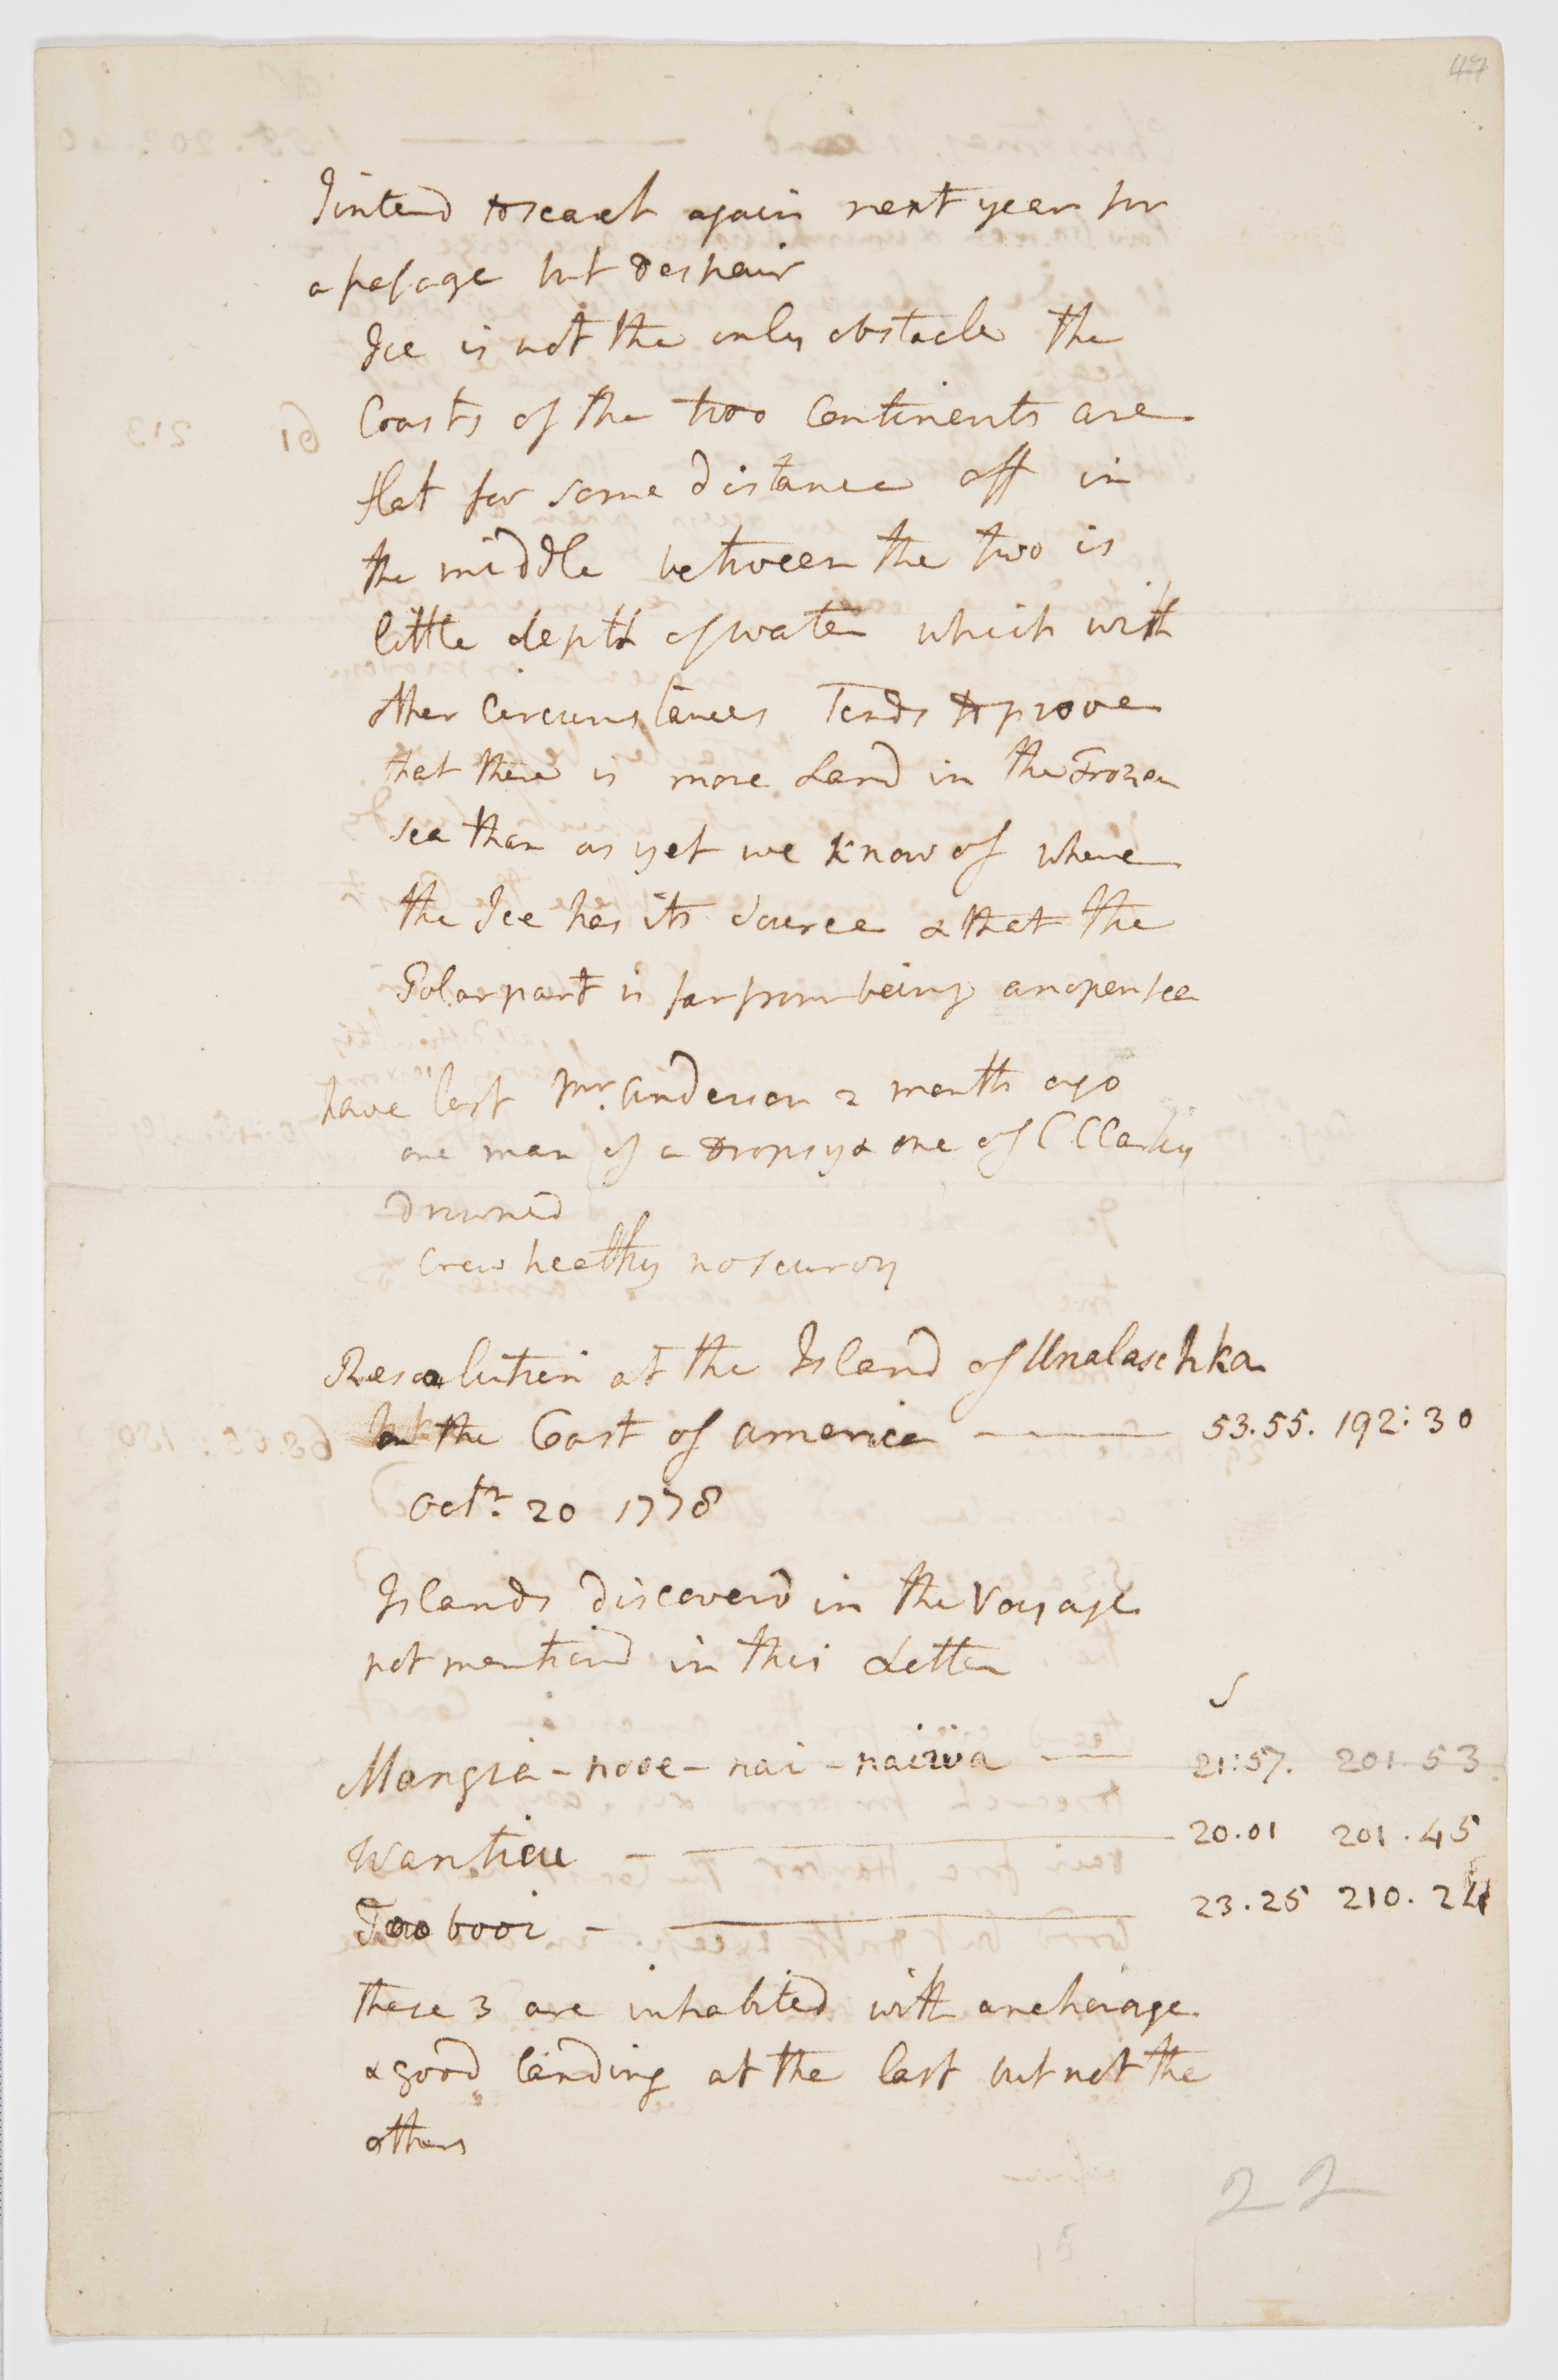 47
I intend to search again next year for
a passage but despair
Ice is not the only obstacle the
Coasts of the two Continents are
flat for some distance off in
the middle between the two is
little depth of water which with
other Circumstances Tends to prove
that there is more Land in the Frozen
sea than as yet we know of where
the Ice has its source & that the
Polar part is far from being an open sea
have lost Mr. Anderson 2 months ago
one man of a Dropsy & one of C Clarkes
Drowned
Crew healthy no scurvy
Resolution at the Island of Unalaschka
on the Coast of america 53.55. 192:30
Octr. 20 1778
Islands discoverd in the Voyage
not mentiond in this Letter
S
Mangia-nooe-nai-naiwa 21:57. 201.53
Wantieu 20.01 201.45
Toobooi 23.25 210.24
these 3 are inhabited with anchorage
& good landing at the last but not the
others
22